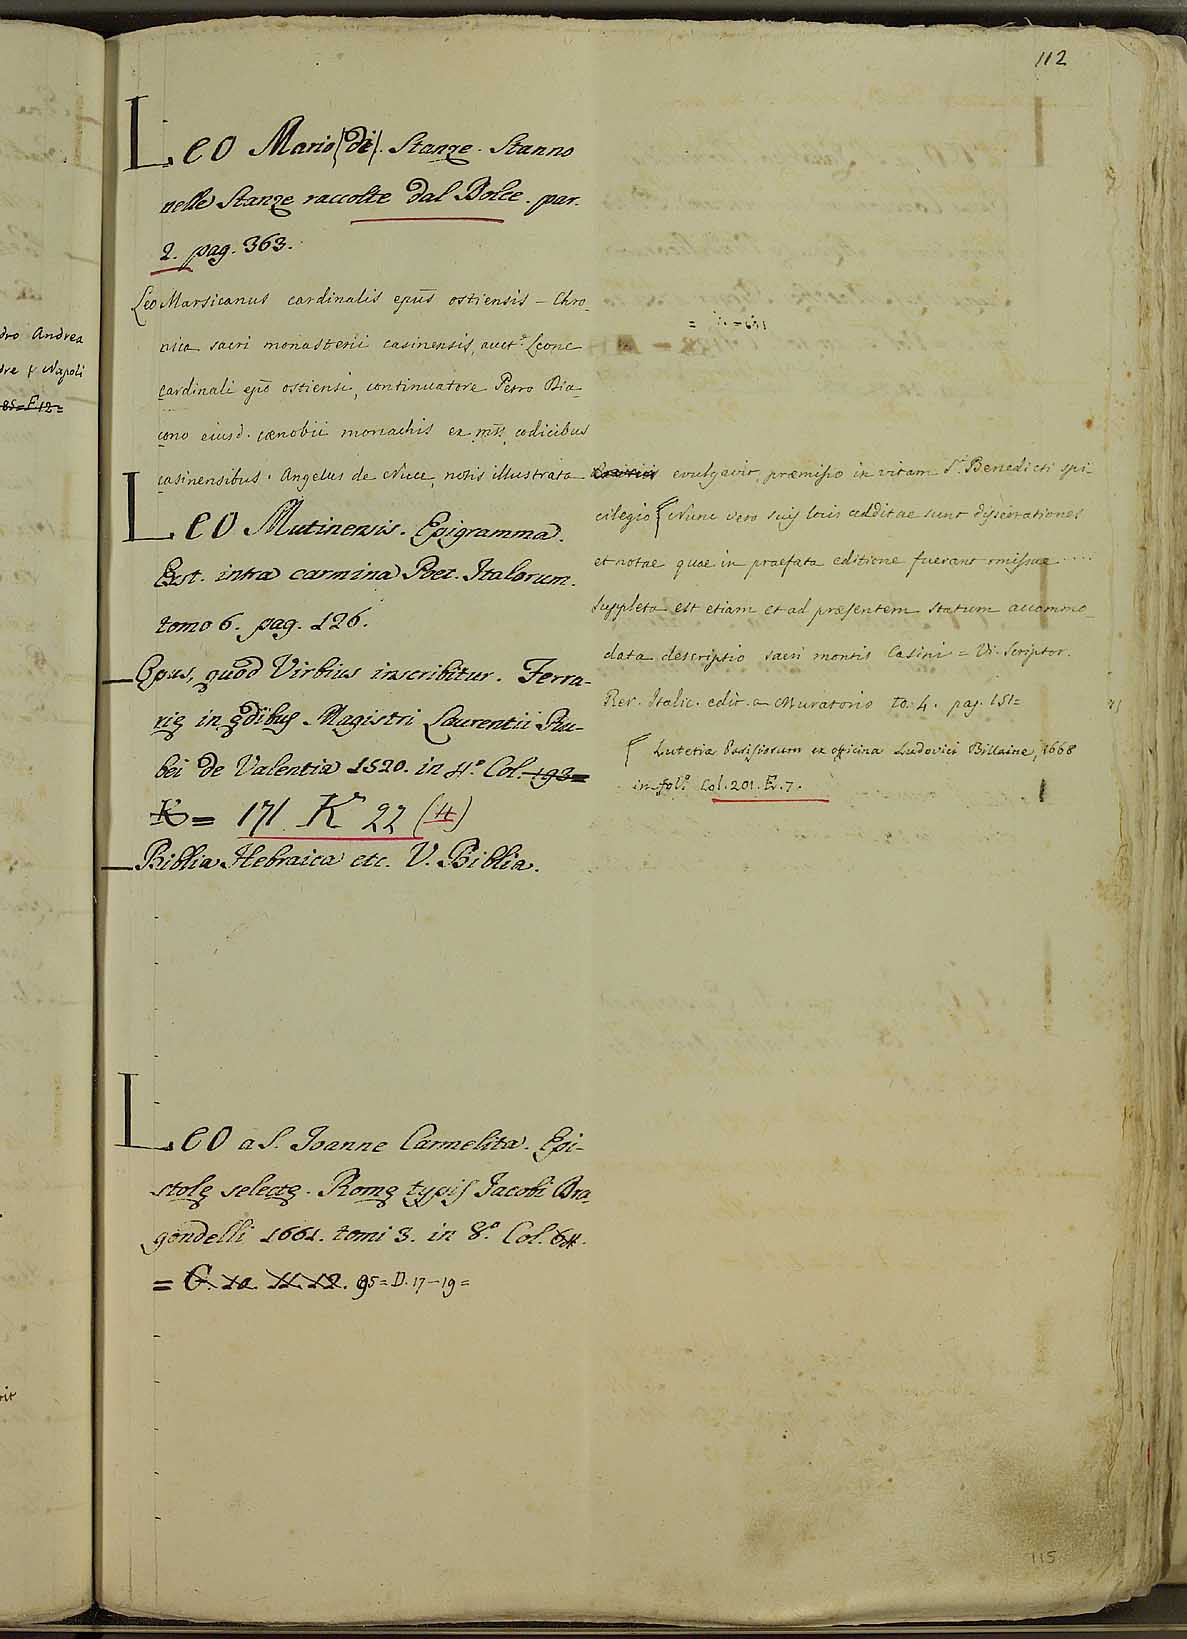 112
Leo Mario (de). Stanze. Stanno
nelle Stanze raccolte dal Dolce. par.
2. pag. 363.
Leo Marsicanus cardinalis epūs ostiensis – Chro
nica sacri monasterii casinensis, auct.e Leone
cardinali epō ostiensi, continuatore Petro Dia
cono eiusd. cœnobii monachis ex mss. codicibus
casinensibus. Angelus de Nuce, notis illustrata
evulgavit, præmisso in vitam S.ti Benedicti spi
cilegio { Nunc vero suis locis additae sunt dissertationes
et notae quae in praefata editione fuerant omissae ....
suppleta est etiam et ad præsentem statum accommo
data descriptio sacri montis Casini = V. Scriptor.
Rer. Italic. edit. a Muratorio to. 4. pag. 151=
{ Lutetiæ Parisiorum ex officina Ludovici Billaine, 1668
in fol.o Col. 201. E. 7.
Leo Mutinensis. Epigramma.
Exst. intra carmina Poet. Italorum.
tomo 6. pag. 126.
— Opus, quod Virbius inscribitur. Ferra-
rię in ędibus Magistri Laurentii Ru-
bei de Valentia 1520. in 4.o Col. 193=
K = 171 K 22 (4)
— Biblia Hebraica etc. V. Biblia.
Leo a S. Joanne Carmelita. Epi-
stolę selectę. Romę typis Jacobi Dra
gondelli 1661. tomi 3. in 8.o Col. 64.
= C. 10. 11. 12. 95 = D. 17–19 =
115
dro Andrea
dre f Napoli
85=F12=